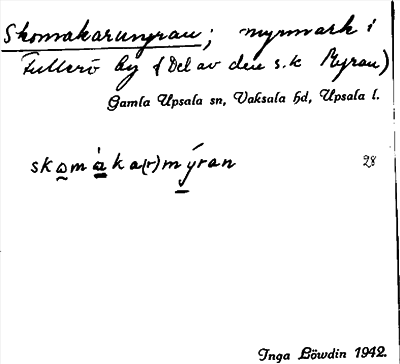 Skomakarmyran; myrmark i
Fullerö by (Del av den s.k Myran)
Gamla Upsala sn, Vaksala hd, Upsala l.
skomáka(r)mýran
28
Inga Löwdin 1942.